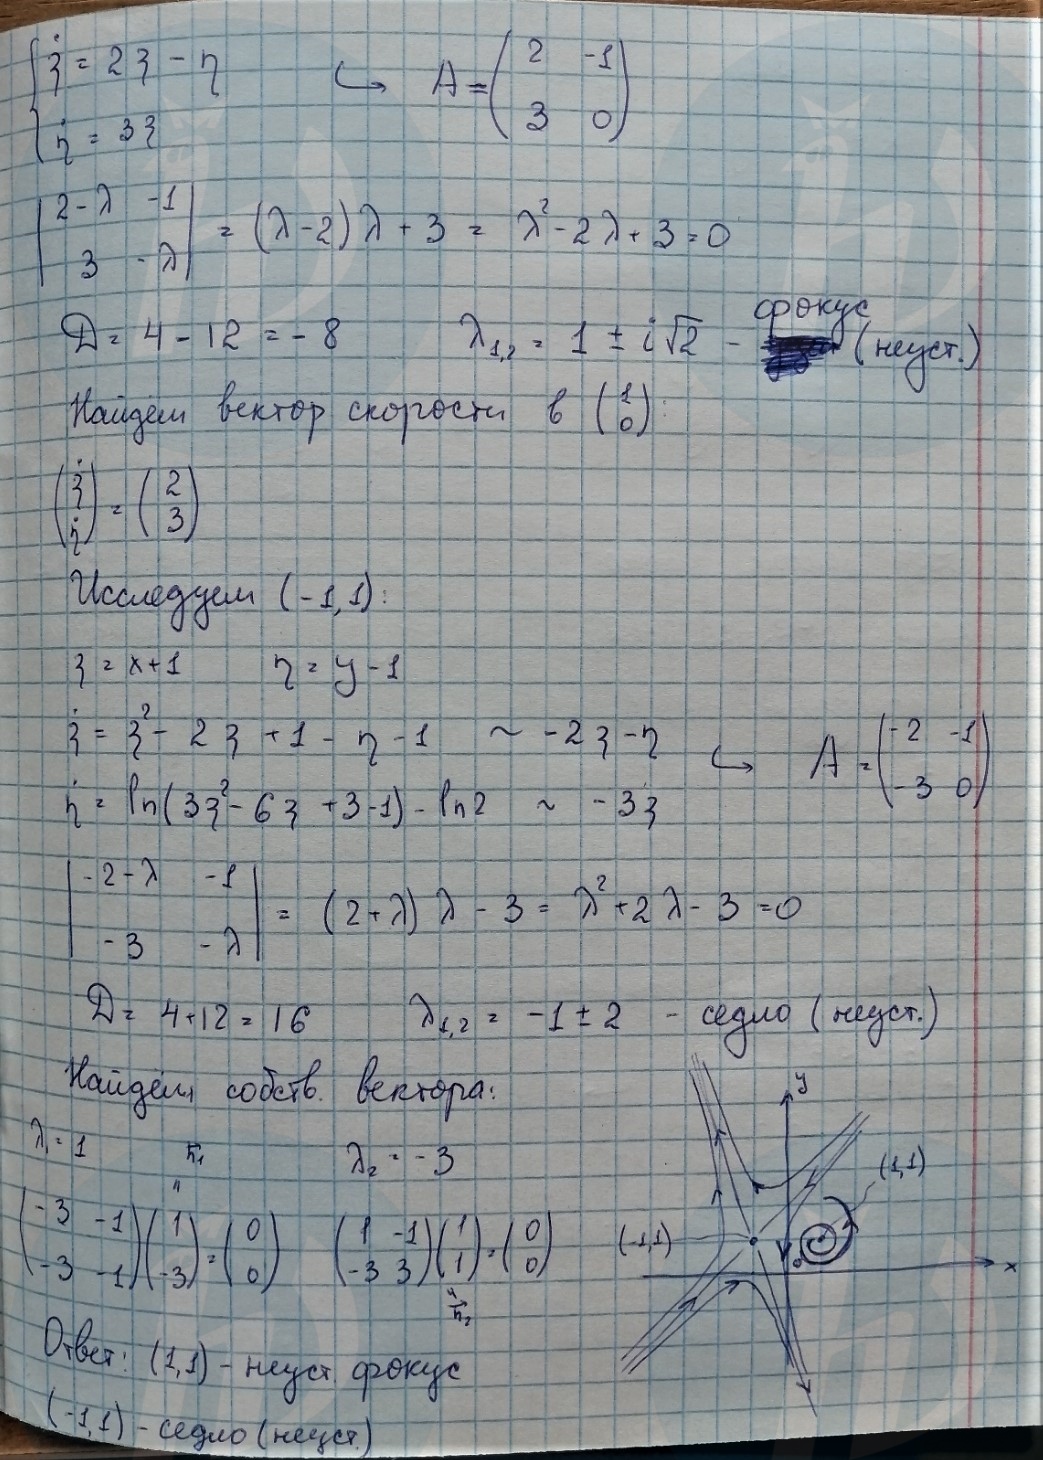 { ξ̇ = 2ξ - η ↪ A = (2 -1; 3 0)
η̇ = 3ξ
|2-λ -1; 3 -λ| = (λ-2)λ + 3 = λ² - 2λ + 3 = 0
D = 4 - 12 = - 8 λ₁,₂ = 1 ± i√2 - фокус (неуст.)
Найдём вектор скорости в (1; 0):
(ξ̇; η̇) = (2; 3)
Исследуем (-1,1):
ξ = x+1 η = y-1
ξ̇ = ξ² - 2ξ + 1 - η - 1 ~ -2ξ - η ↪ A = (-2 -1; -3 0)
η̇ = ln(3ξ² - 6ξ + 3 - 1) - ln2 ~ -3ξ
|-2-λ -1; -3 -λ| = (2+λ)λ - 3 = λ² + 2λ - 3 = 0
D = 4+12 = 16 λ₁,₂ = -1 ± 2 - седло (неуст.)
Найдём собств. вектора:
λ₁ = 1 h₁ λ₂ = -3
(-3 -1; -3 -1)(1; -3) = (0; 0) (1 -1; -3 3)(1; 1) = (0; 0)
h₂
y
(1,1)
(-1,1)
0 x
Ответ: (1,1) - неуст. фокус
(-1,1) - седло (неуст.)